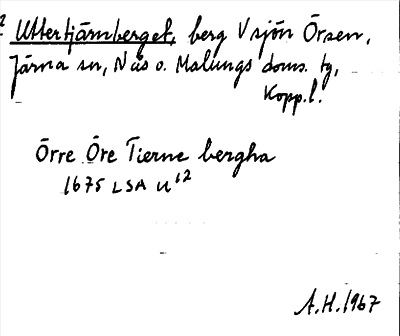 Uttertjärnberget, berg V sjön Örsen,
Järna sn, Näs o. Malungs doms. tg,
Kopp.l.
Örre Öre Tierne bergha
1675 LSA U 12
A.H. 1967